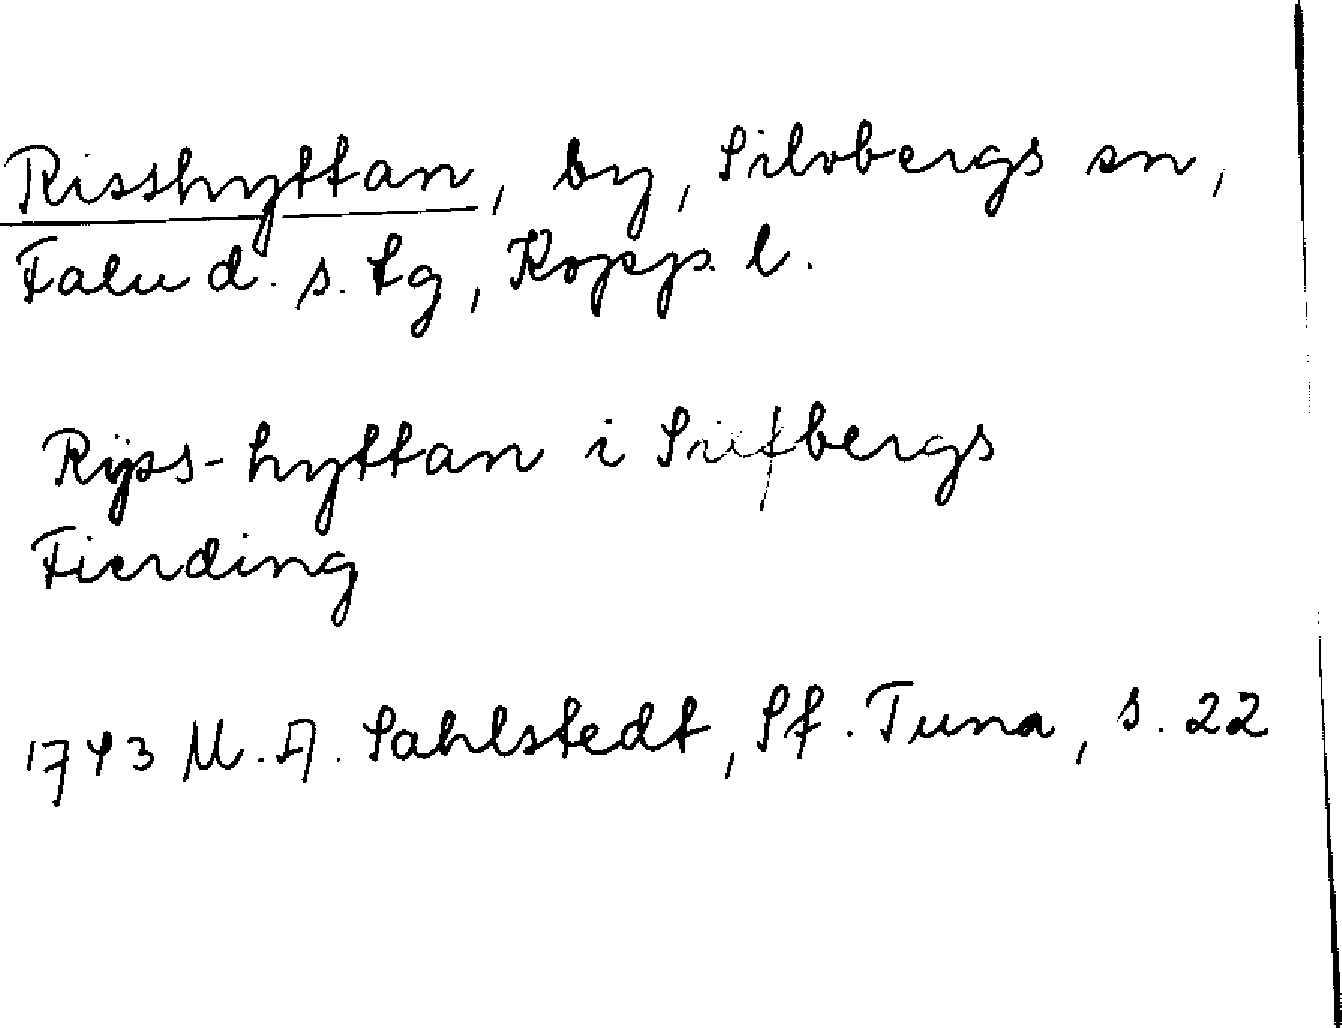 Risshyttan, by, Silvbergs sn,
Falu d. s. tg, Kopp. l.
Rÿss-hyttan i bergs
Fierding
1743 M. A. Sahlstedt, St. Tuna, s. 22